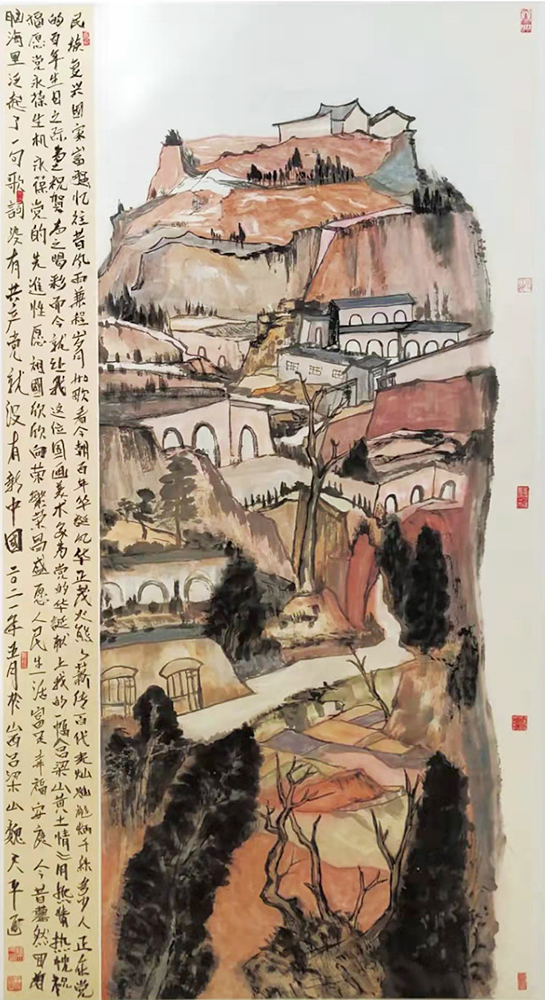 民族复兴國家富强忆往昔风雨兼程岁月如歌看今朝百年华诞风华正茂火熊熊薪传百代光灿灿彪炳千秋多少人正在党
的百年生日之际为之祝贺为之喝彩而今就让我这位國画美术家为党的华诞献上我的幅吕梁山黄土情之用热情热忱祝
福愿党永葆生机永葆党的先進性愿祖國欣欣向荣繁荣昌盛愿人民生活富足幸福安康今昔蓦然回首
脑海里泛起了一句歌詞没有共产党就没有新中國二〇二一年五月於山西吕梁山魏天平画